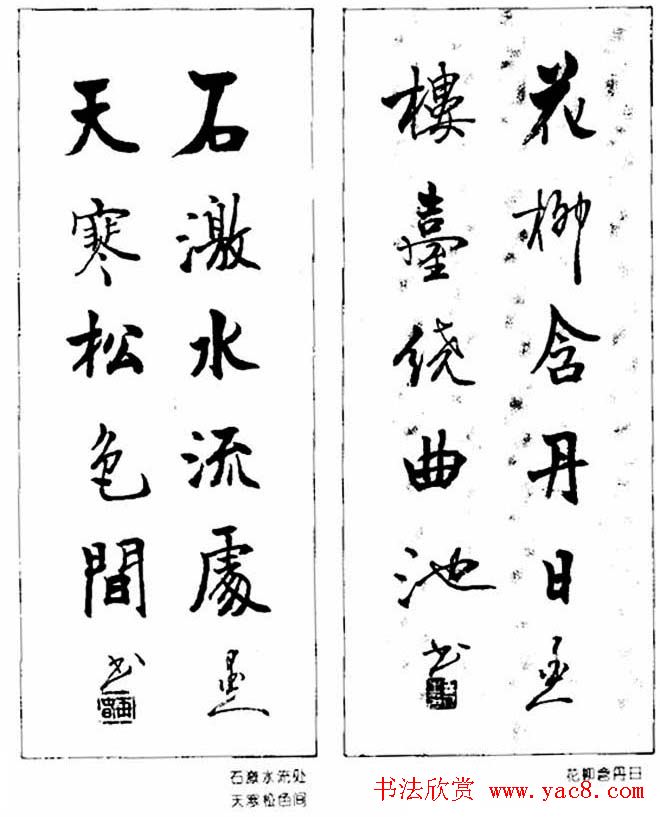 花柳含丹日
樓臺绕曲池
书
石激水流處
天寒松色間
书
花柳含丹日
石激水流处
天寒松色间
书法欣赏 www.yac8.com